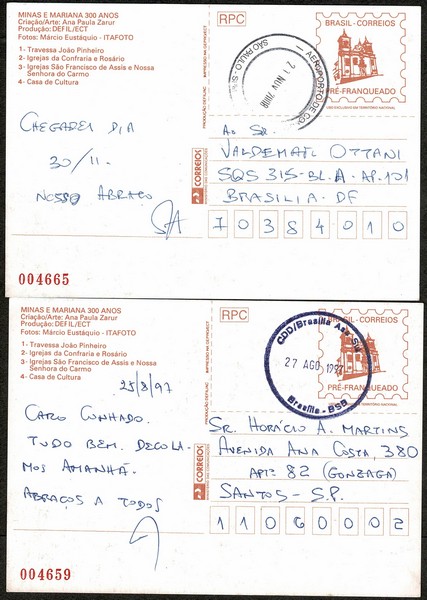 MINAS E MARIANA 300 ANOS
Criação/Arte: Ana Paula Zarur
Produção: DEFIL/ECT
Fotos: Márcio Eustáquio - ITAFOTO
1 - Travessa João Pinheiro
2 - Igrejas da Confraria e Rosário
3 - Igrejas São Francisco de Assis e Nossa
Senhora do Carmo
4 - Casa de Cultura
RPC
IMPRESSO NA GEPRO/ECT
PRODUÇÃO DEFIL/ING
CORREIOS
AEROPORTO DE
SÃO PAULO - S
21 NOV
BRASIL - CORREIOS
PRÉ-FRANQUEADO
USO EXCLUSIVO EM TERRITÓRIO NACIONAL
CHEGAREI DIA
30/11.
NOSSO ABRAÇO
AO SR.
VALDEMAR OTTANI
SQS 315-BL.A-AP.101
BRASILIA-DF
70384010
004665
MINAS E MARIANA 300 ANOS
Criação/Arte: Ana Paula Zarur
Produção: DEFIL/ECT
Fotos: Márcio Eustáquio - ITAFOTO
1 - Travessa João Pinheiro
2 - Igrejas da Confraria e Rosário
3 - Igrejas São Francisco de Assis e Nossa
Senhora do Carmo
4 - Casa de Cultura
RPC
IMPRESSO NA GEPRO/ECT
PRODUÇÃO DEFIL/ING
CORREIOS
CDD/Brasília Asa Sul
27 AGO 1997
Brasília - BSB
BRASIL - CORREIOS
PRÉ-FRANQUEADO
TERRITÓRIO NACIONAL
25/8/97
CARO CUNHADO.
TUDO BEM. DECOLA-
MOS AMANHÃ.
ABRAÇOS A TODOS
SR. HORÁCIO A. MARTINS
AVENIDA ANA COSTA, 380
APTº 82 (GONZAGA)
SANTOS - S.P.
11060002
004659